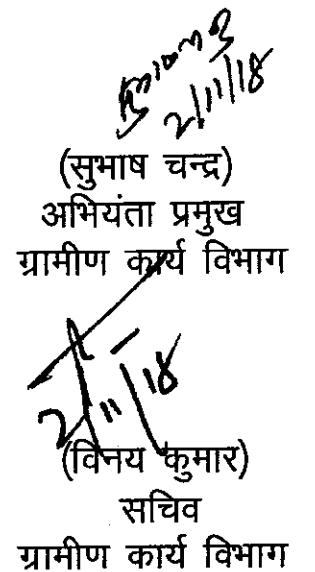 2/11/18
(सुभाष चन्द्र)
अभियंता प्रमुख
ग्रामीण कार्य विभाग
2/11/18
(विनय कुमार)
सचिव
ग्रामीण कार्य विभाग